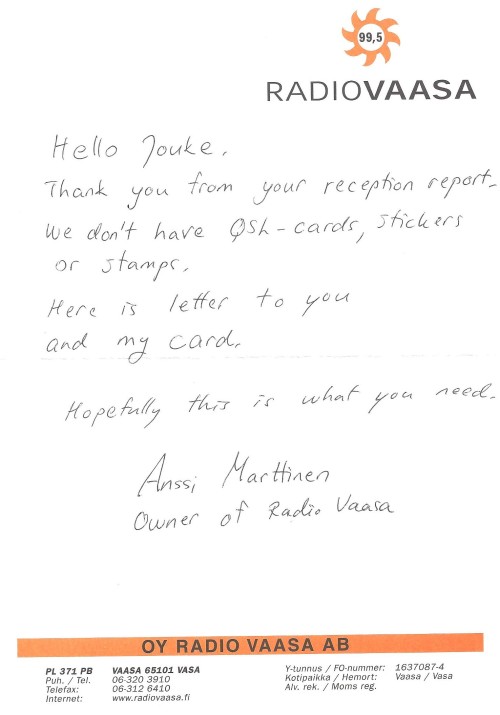 99,5
RADIOVAASA
Hello Jouke,
Thank you from your reception report.
We don't have QSL-cards, stickers
or stamps.
Here is letter to you
and my card.
Hopefully this is what you need.
Anssi Marttinen
Owner of Radio Vaasa
OY RADIO VAASA AB
PL 371 PB VAASA 65101 VASA
Puh. / Tel. 06-320 3910
Telefax: 06-312 6410
Internet: www.radiovaasa.fi
Y-tunnus / FO-nummer: 1637087-4
Kotipaikka / Hemort: Vaasa / Vasa
Alv. rek. / Moms reg.